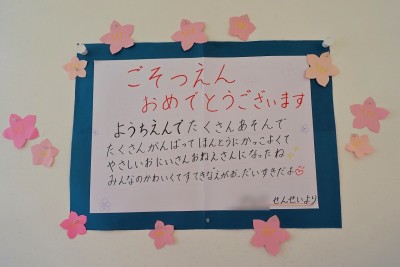 ごそつえん
おめでとうございます
ようちえんでたくさんあそんで
たくさんがんばってほんとうにかっこよくて
やさしいおにいさんおねえさんになったね
みんなのかわいくてすてきなえがお、だいすきだよ
せんせいより